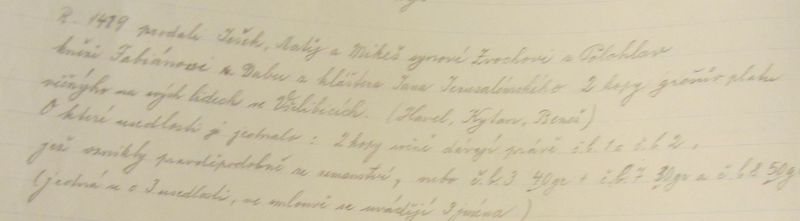 R. 1419 prodali Ješek, Matěj a Mikeš synové Zvochovi z Polohlav
knězi Fabiánovi z Dubu a kláštera Jana Jeruzalémského 2 kopy grošův platu
věčnýho na svých lidech ve Všelibicích. (Havel, Kylan, Beneš)
O které usedlosti jí jednalo: 2 kopy určitě dávají právě č.b. 1 a č.b 2,
jež vznikly pravděpodobně ze zemanství, nebo č.b. 3 40 gr + č.b. 7 30 gr a č.b 8 50 g
(jedná se o 3 usedlosti, ve smlouvě se uvádějí 3 jména)